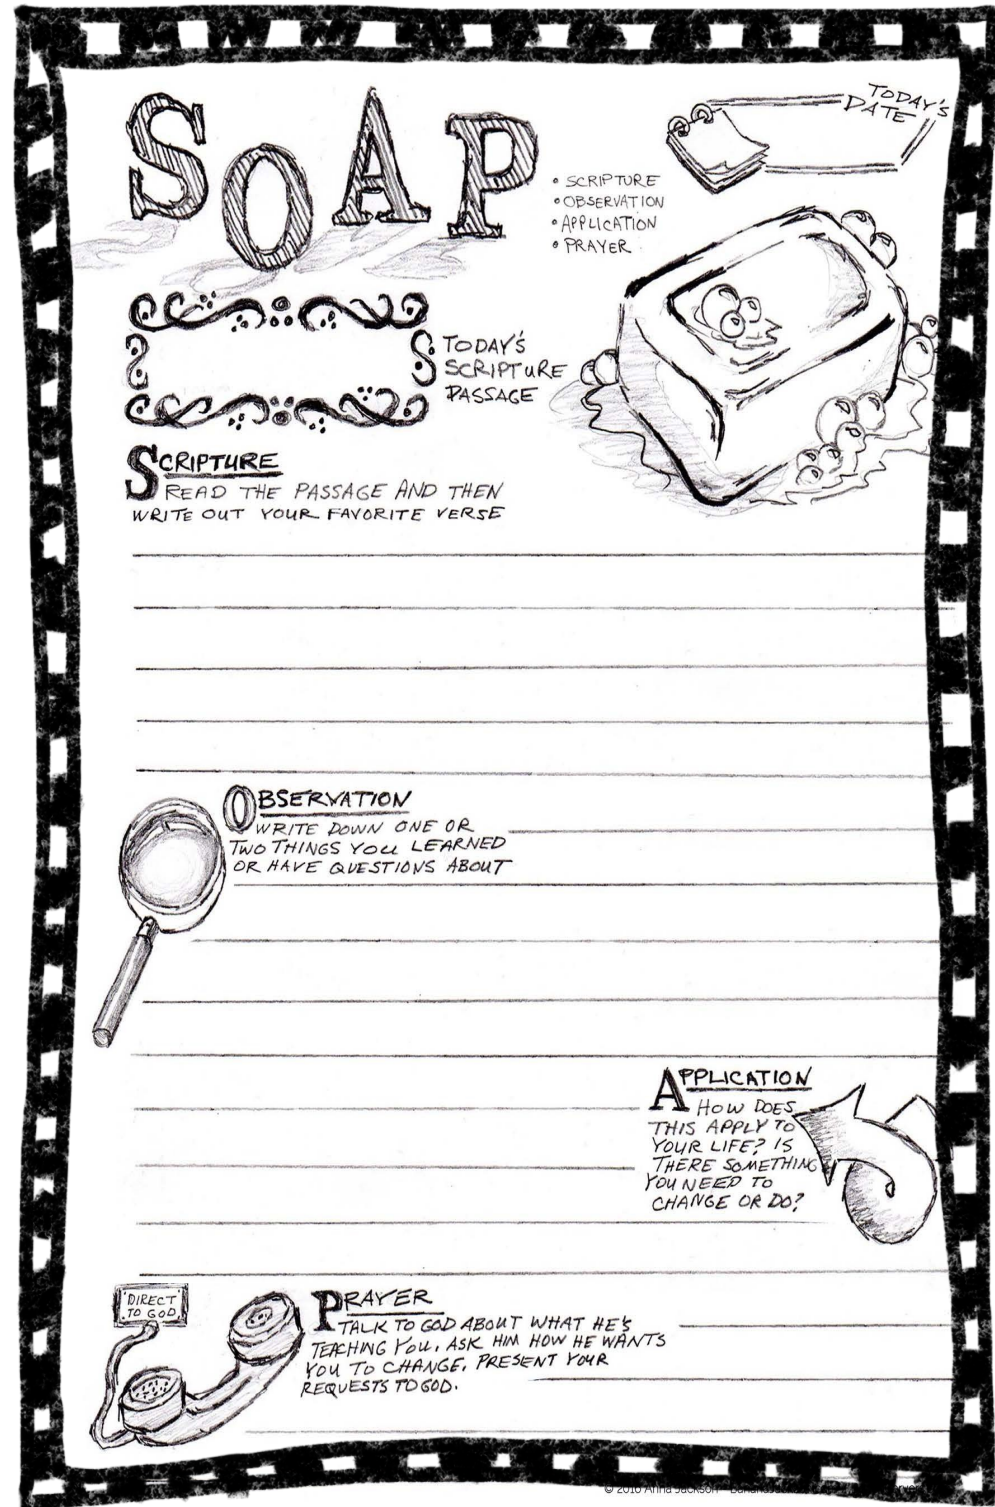 SOAP
TODAY'S
DATE
• SCRIPTURE
• OBSERVATION
• APPLICATION
• PRAYER
TODAY'S
SCRIPTURE
PASSAGE
SCRIPTURE
READ THE PASSAGE AND THEN
WRITE OUT YOUR FAVORITE VERSE
OBSERVATION
WRITE DOWN ONE OR
TWO THINGS YOU LEARNED
OR HAVE QUESTIONS ABOUT
APPLICATION
HOW DOES
THIS APPLY TO
YOUR LIFE? IS
THERE SOMETHING
YOU NEED TO
CHANGE OR DO?
DIRECT
TO GOD
PRAYER
TALK TO GOD ABOUT WHAT HE'S
TEACHING YOU. ASK HIM HOW HE WANTS
YOU TO CHANGE. PRESENT YOUR
REQUESTS TO GOD.
© 2016 Anna Jackson